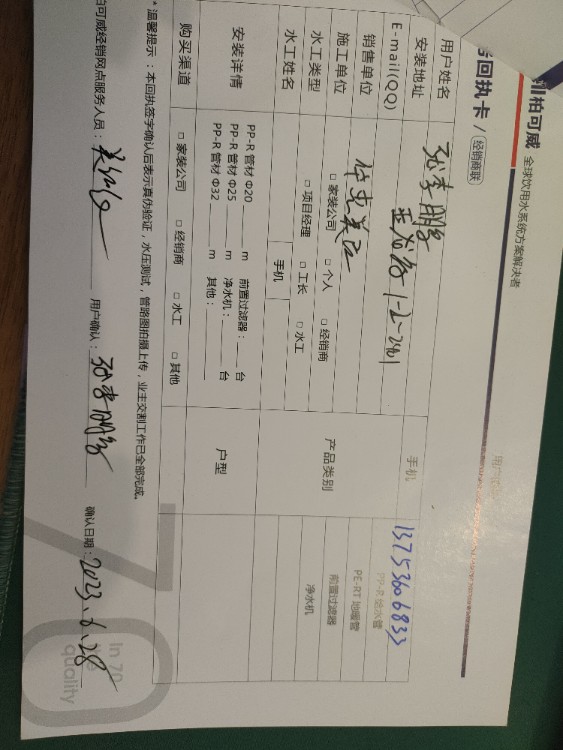 柏可威 全球饮用水系统方案解决者
回执卡 / 经销商联
用户姓名 手机 13753606833
安装地址 1-2-2401
E-mail(QQ) 产品类别 PP-R 给水管
销售单位 PE-RT 地暖管
施工单位 □ 家装公司 □ 个人 □ 经销商 前置过滤器
水工类型 □ 项目经理 □ 工长 □ 水工 净水机
水工姓名 手机
安装详情 PP-R 管材 Φ20 ____ m 前置过滤器：____ 台 户型
PP-R 管材 Φ25 ____ m 净水机：____ 台
PP-R 管材 Φ32 ____ m 其他：____
购买渠道 □ 家装公司 □ 经销商 □ 水工 □ 其他
* 温馨提示：本回执签字确认后表示真伪验证，水压测试，管路图拍摄上传，业主交割工作已全部完成。
柏可威经销网点服务人员： 用户确认： 确认日期：2023.6.28
In 70
quality